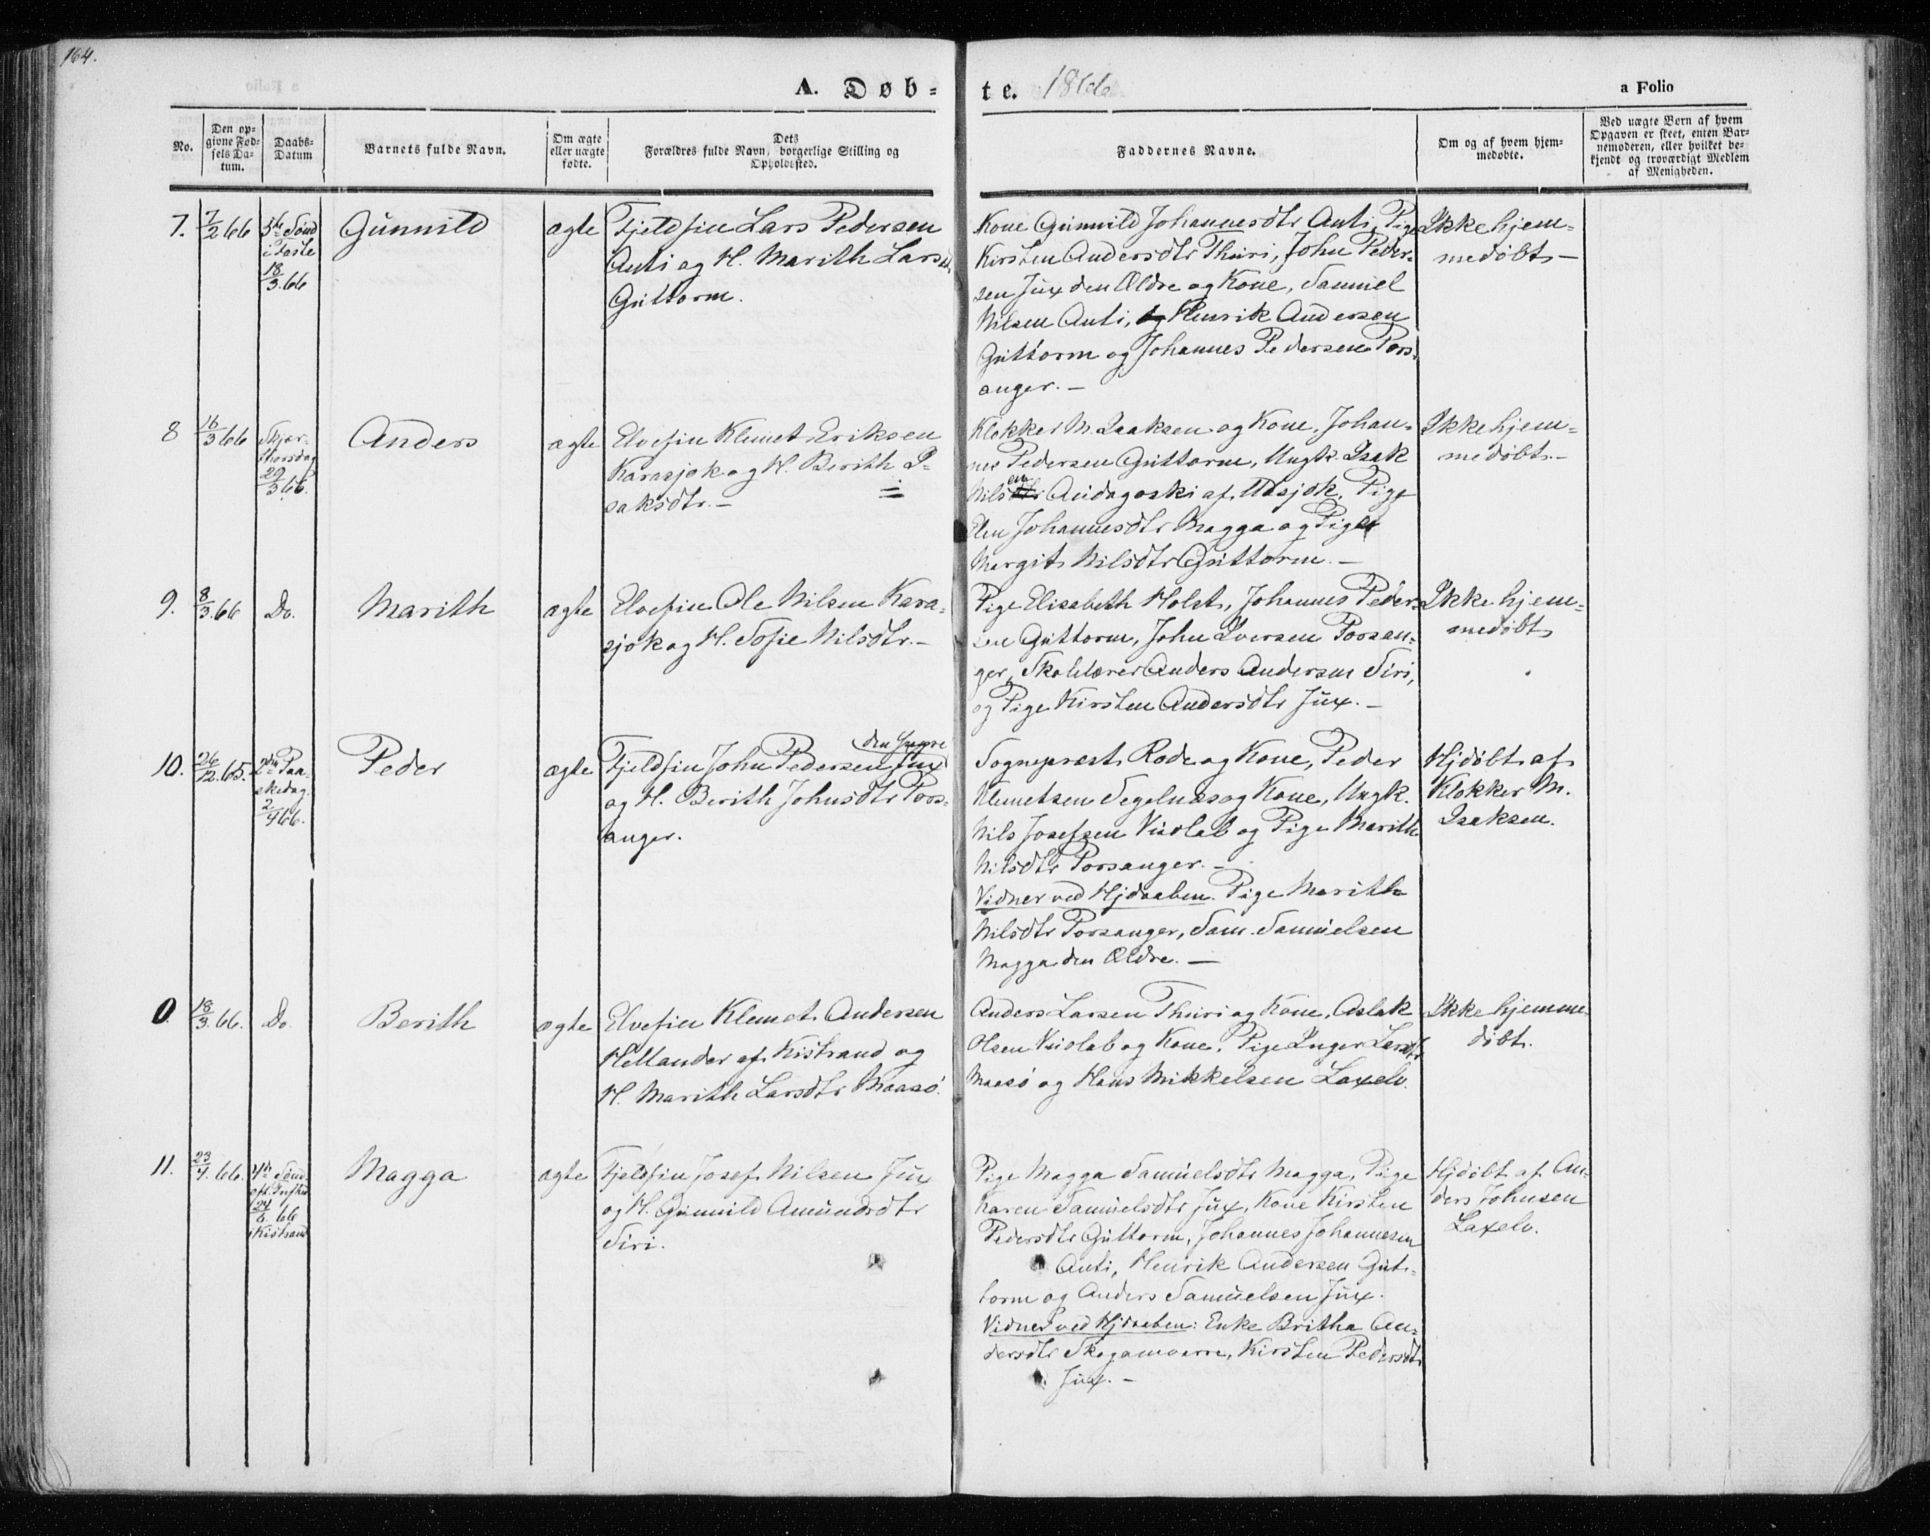 164.
A. Døb-
te. 1866
a Folio
No.
Den op-
givne Fød-
sels Da-
tum.
Daabs-
Datum
Barnets fulde Navn.
Om ægte
eller uægte
fødte.
Dets
Forældres fulde Navn, borgerlige Stilling og
Opholdssted.
Faddernes Navne.
Om og af hvem hjem-
medøbte.
Ved uægte Børn af hvem
Opgaven er skeet, enten Bar-
nemoderen, eller hvilket be-
kjendt og troværdigt Medlem
af Menigheden.
7.
7/2 66
5te Sønd
i Faste
18/3 66
Gunnild
ægte
Fjeldfin Lars Pedersen
Anti og H. Marith Larsdtr
Guttorm.
Kone Gunnild Johannesdtr Anti, Pige
Kirsten Andersdtr Thuri, John Peder-
sen Jux den Ældre og Kone, Samuel
Nilsen Anti, og Henrik Andersen
Guttorm og Johannes Pedersen Pors-
anger. —
Ikke hjem-
medøbt —
8
16/3 66
Skjær-
thorsdag
29/3 66.
Anders
ægte
Elvefin Klemet Eriksen
Karasjok og H. Berith I-
saksdtr. —
Klokker M. Isaksen og Kone, Johan-
nes Pedersen Guttorm, Ungk. Isak
Nilsen Audagoski af Utsjok, Pige
Elen Johannesdtr Magga og Pige
Margit Nilsdtr Guttorm. —
Ikke hjem-
medøbt. —
9.
8/3 66
Do.
Marith
ægte
Elvefin Ole Nilsen Kara-
sjok og H. Sofie Nilsdtr. —
Pige Elisabeth Holst, Johannes Peder-
sen Guttorm, John Iversen Porsan-
ger, Skolelærer Anders Andersen Siri,
og Pige Kirsten Andersdtr Jux. —
Ikke hjem-
medøbt
10.
26/12 65.
2den Paa-
skedag
2/4 66.
Peder
ægte
den Yngre
Fjeldfin John Pedersen Jux
og H. Berith Johnsdtr Pors-
anger.
Sogneprest Rode og Kone, Peder
Klemetsen Segelnæs og Kone, Ungk.
Nils Josefsen Vuolab og Pige Marith
Nilsdtr Porsanger. —
Vidner ved Hjdaaben. Pige Marith
Nilsdtr Porsanger, Sam. Samuelsen
Magga den Ældre. —
Hjdøbt af
Klokker M.
Isaksen.
0.
18/3 66.
Do.
Berith
ægte
Elvefin Klemet Andersen
Hellander af Kistrand og
H. Marith Larsdtr Maasø.
Anders Larsen Thuri og Kone, Aslak
Olsen Vuolab og Kone, Pige Inger Larsdtr
Maasø og Hans Mikkelsen Laxelv.
Ikke hjemme-
døbt.
11.
23/4 66.
4de Sønd.
eft. Trefhd
24/6 66
Kistrand
Magga
ægte
Fjeldfin Josef Nilsen Jux
og H. Gunnild Amundsdtr
Siri.
Pige Magga Samuelsdtr Magga, Pige
Karen Samuelsdtr Jux, Kone Kirsten
Pedersdtr Guttorm, Johannes Johannesen
Anti, Henrik Andersen Gut-
torm og Anders Samuelsen Jux.
Vidner ved Hjdaaben: Enke Britha An-
dersdtr Skoganvarre, Kirsten Pedersdtr
Jux. —
Hjdøbt af An-
ders Johnsen
Laxelv.